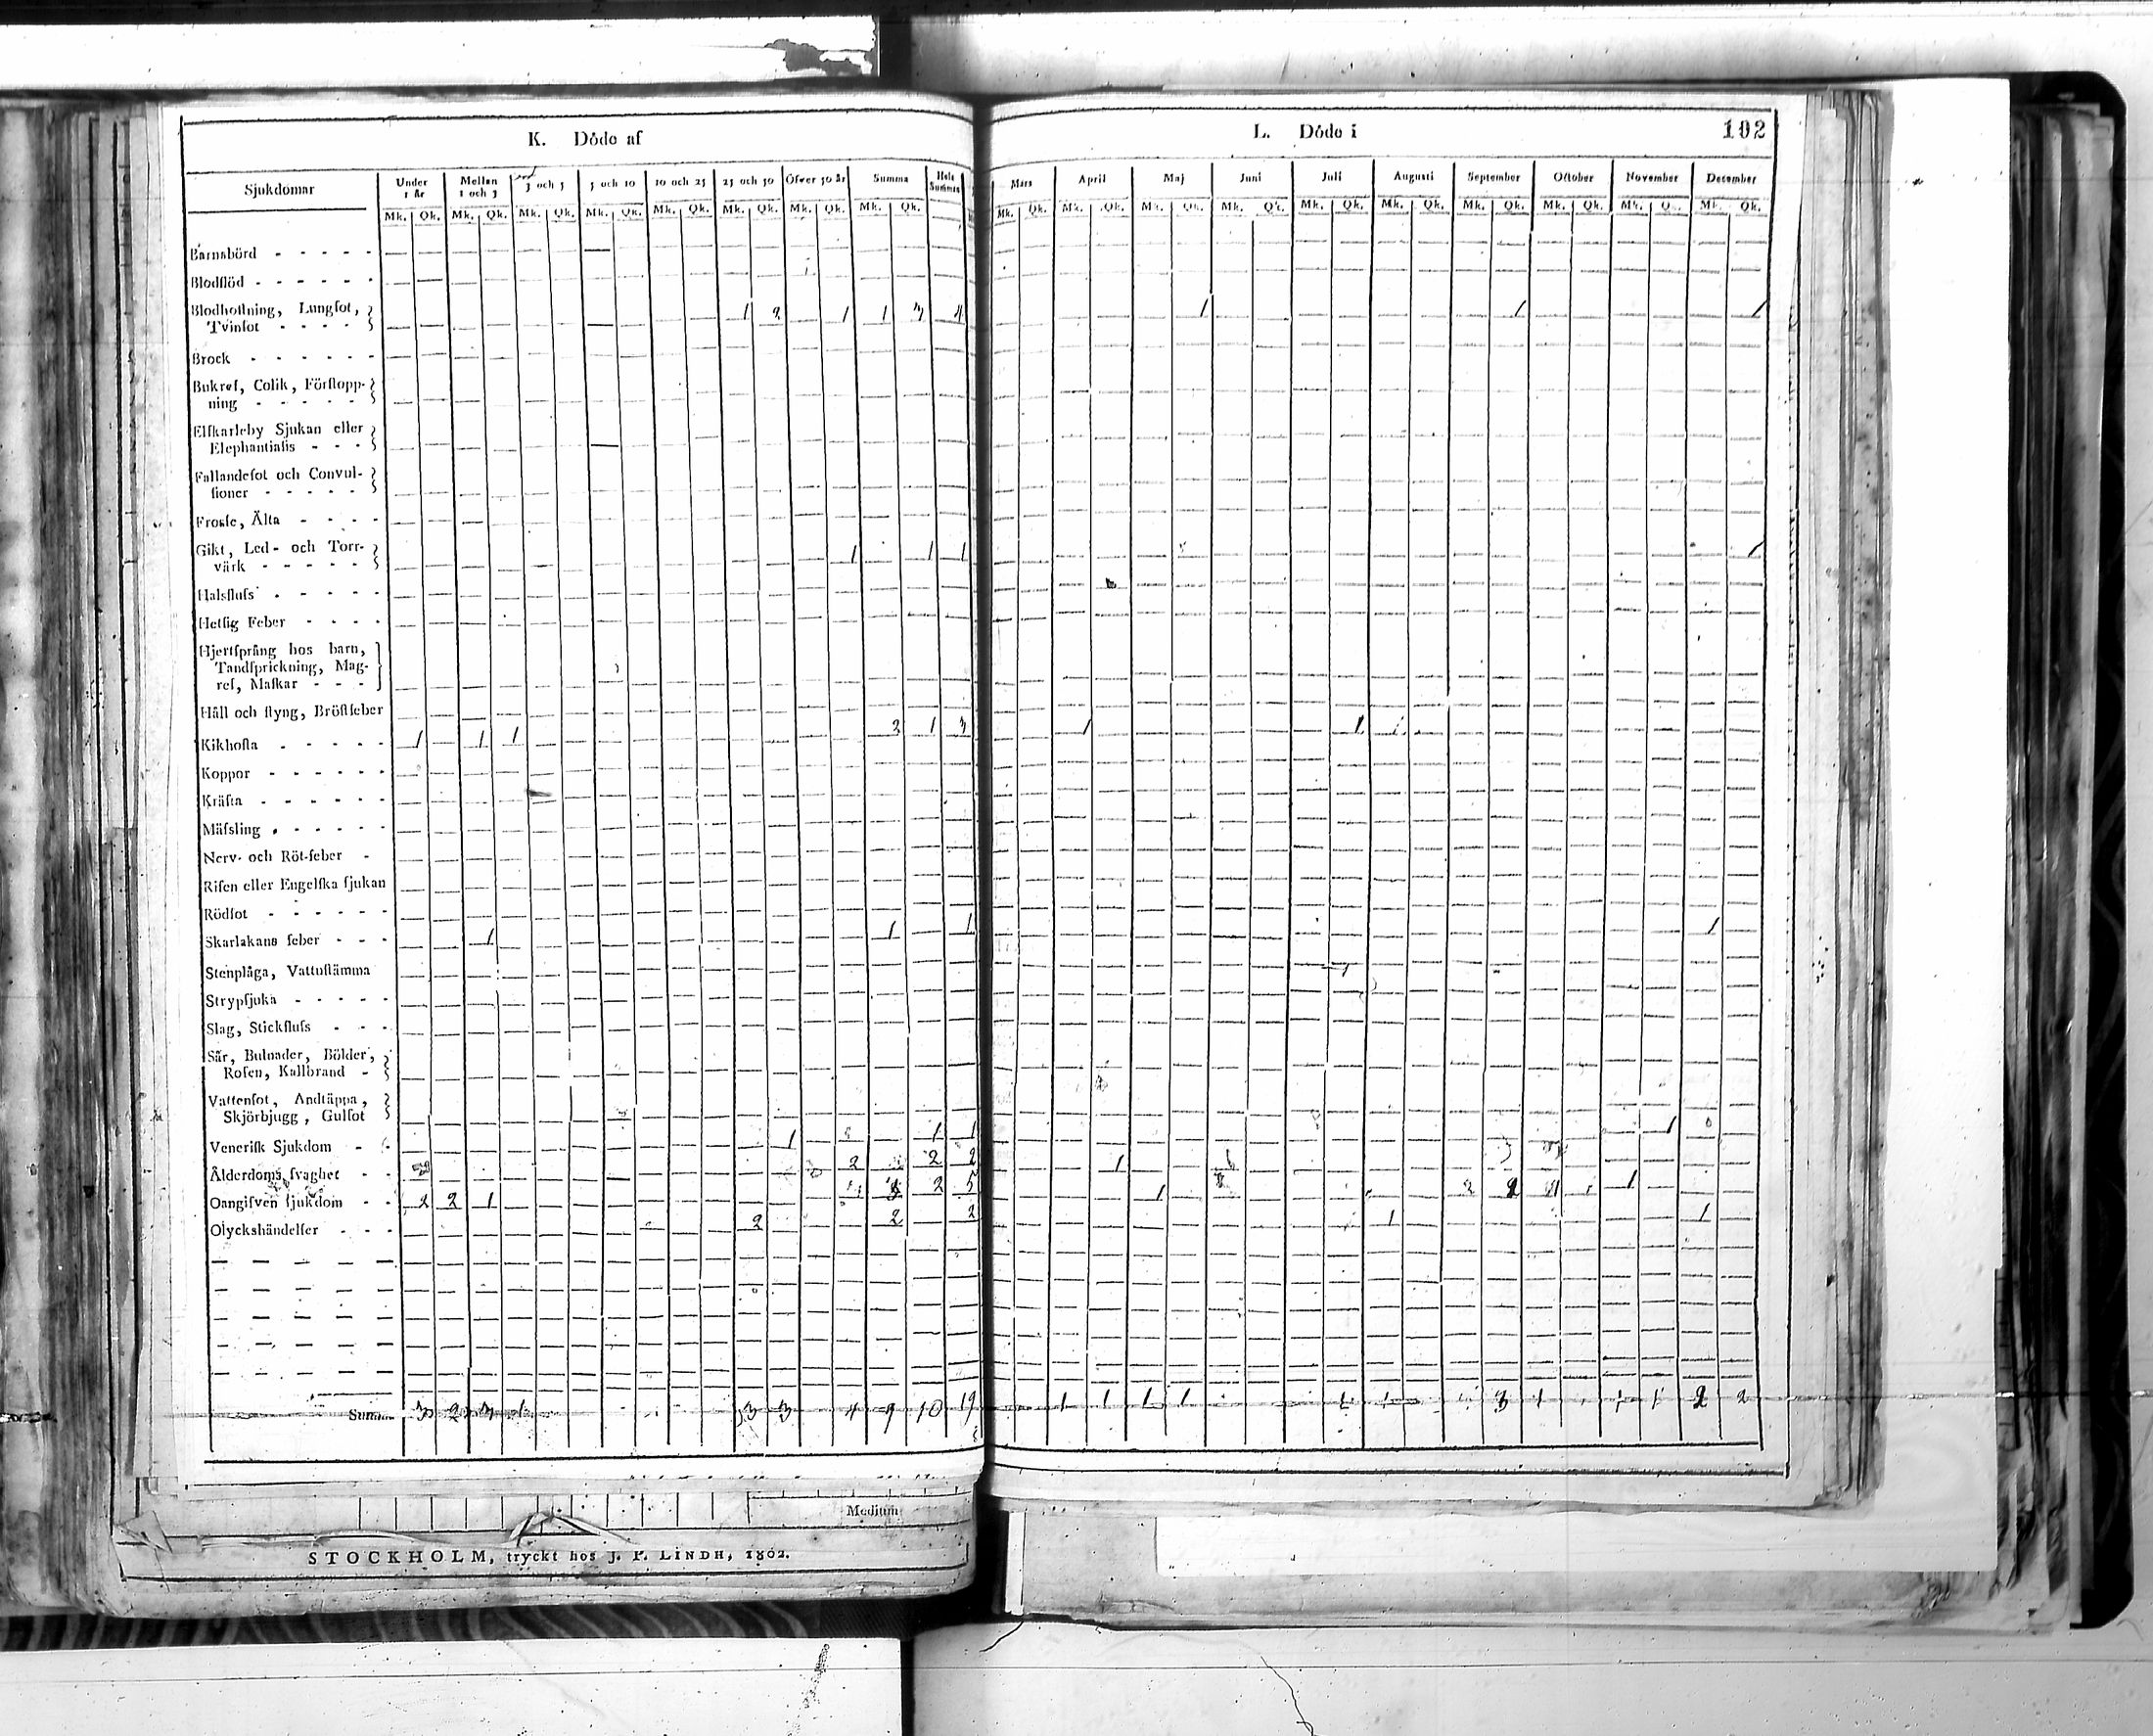 K. Döde af
L. Döde i
102
Sjukdomar Under 1 år Mellan 1 och 3 3 och 5 5 och 10 10 och 25 25 och 50 Öfver 50 år Summa Hela Summan
Mars April Maj Juni Juli Augusti September October November December
Mk. Qk. Mk. Qk. Mk. Qk. Mk. Qk. Mk. Qk. Mk. Qk. Mk. Qk. Mk. Qk.
Mk. Qk. Mk. Qk. Mk. Qk. Mk. Qk. Mk. Qk. Mk. Qk. Mk. Qk. Mk. Qk. Mk. Qk. Mk. Qk.
Barnsbörd - - - - -
Blodflöd - - - - - -
Blodhoſtning, Lungſot,
Tvinſot - - - - 1 2 1 1 3 4 1 1 1
Brock - - - - - -
Bukref, Colik, Förſtopp-
ning - - - - -
Elſkarleby Sjukan eller
Elephantiaſis - - -
Fallandeſot och Convul-
ſioner - - - - -
Froſſe, Älta - - - -
Gikt, Led- och Torr-
värk - - - - - 1 1 1 1
Halsfluſs - - - - -
Hetſig Feber - - - -
Hjertſprång hos barn,
Tandſprickning, Mag-
ref, Maſkar - - -
Håll och ſtyng, Bröſtfeber
Kikhoſta - - - - - 1 1 1 2 1 3 1 1 1
Koppor - - - - - -
Kräfta - - - - - -
Mäſsling - - - - -
Nerv- och Röt-feber -
Riſen eller Engelſka ſjukan
Rödſot - - - - - -
Skarlakans feber - - - 1 1 1 1
Stenplåga, Vattuſtämma
Strypſjuka - - - - -
Slag, Stickfluſs - - -
Sår, Bulnader, Bölder,
Roſen, Kallbrand -
Vattenſot, Andtäppa,
Skjörbjugg, Gulſot
Veneriſk Sjukdom - - 1 1 1 1
Ålderdoms ſvaghet - - 2 2 2 1
Oangifven ſjukdom - - 2 2 1 3 2 5 1 1
Olyckshändelſer - - - 2 2 2 1 1
Summa 3 2 3 1 3 3 4 9 10 19 1 1 1 1 1 1 3 1 1 1 2 2
Medium
STOCKHOLM, tryckt hos J. P. LINDH, 1802.